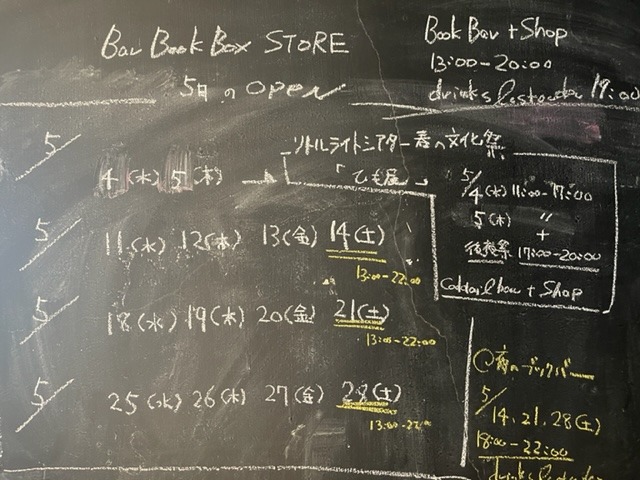 Bar Book Box STORE
5月のOpen
Book Bar + Shop
13:00-20:00
drinks last order 19:00
5/
4(水) 5(木)
リトルライトシアター春の文化祭
「ひも展」
5/
4(水) 11:00-17:00
5(木) 〃
+
後夜祭 17:00-20:00
cocktail bar + Shop
5/
11(水) 12(木) 13(金) 14(土)
13:00-22:00
5/
18(水) 19(木) 20(金) 21(土)
13:00-22:00
5/
25(水) 26(木) 27(金) 28(土)
13:00-22:00
夜のブックバー
5/
14, 21, 28(土)
18:00-22:00
drinks last order